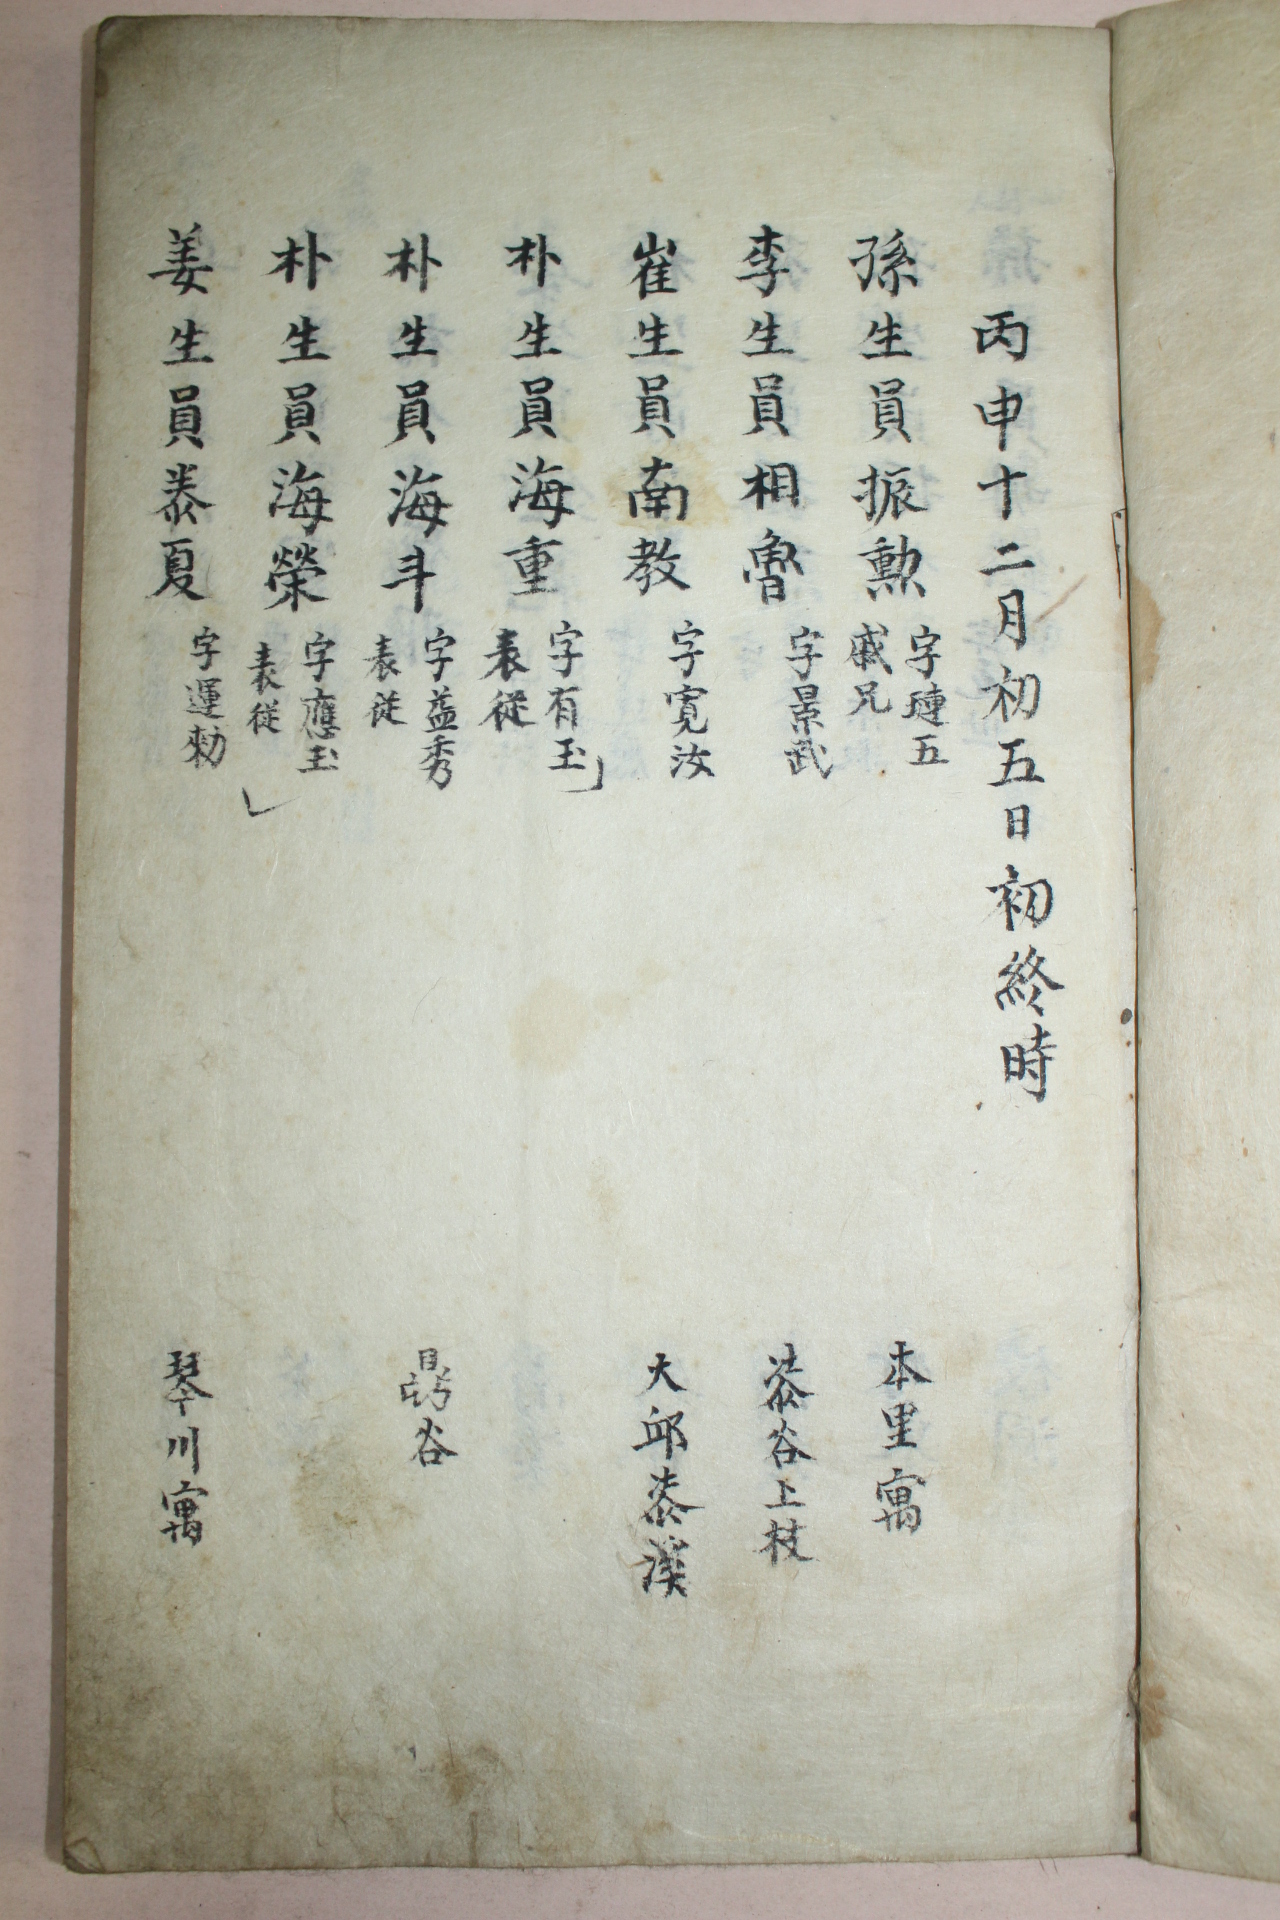 丙申十二月初五日初終時
孫生員振勲 字璉五 戚兄 本里寓
李生員相魯 字景武 谷上枝
崔生員南教 字寛汝 大邱溪
朴生員海重 字有玉 表從
朴生員海斗 字益秀 表從 谷
朴生員海榮 字應玉 表從
姜生員泰夏 字運勅 琴川寓